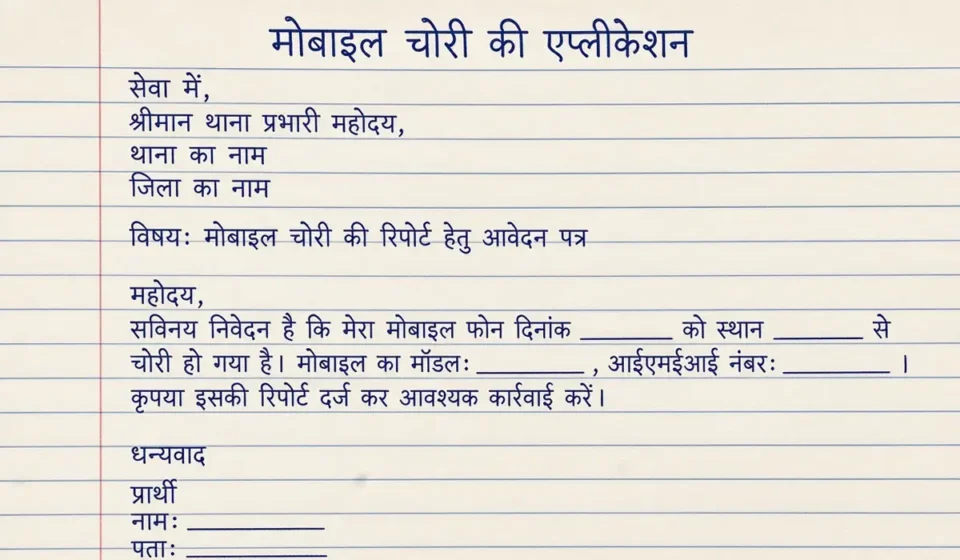 मोबाइल चोरी की एप्लीकेशन
सेवा में,
श्रीमान थाना प्रभारी महोदय,
थाना का नाम
जिला का नाम
विषय: मोबाइल चोरी की रिपोर्ट हेतु आवेदन पत्र
महोदय,
सविनय निवेदन है कि मेरा मोबाइल फोन दिनांक ________ को स्थान ________ से
चोरी हो गया है। मोबाइल का मॉडल: _________ , आईएमईआई नंबर: _________ ।
कृपया इसकी रिपोर्ट दर्ज कर आवश्यक कार्रवाई करें।
धन्यवाद
प्रार्थी
नाम: ____________
पता: ____________